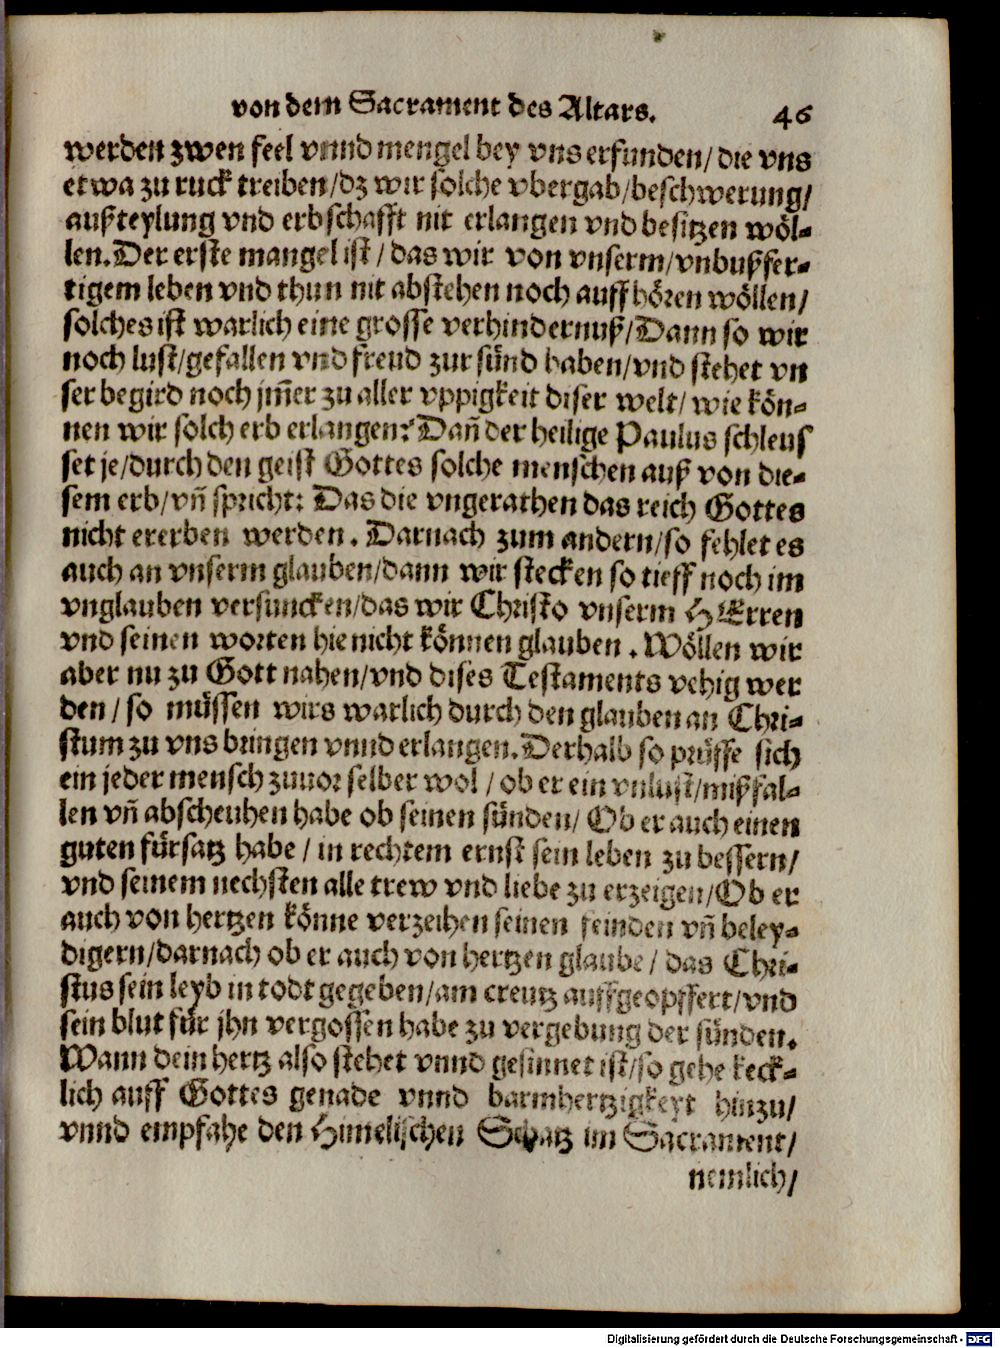 von dem Sacrament des Altars. 46
werden zwen feel vnnd mengel bey vns erfunden/ die vns
etwa zu ruck treiben/dz wir solche vbergab/beschwerung/
außteylung vnd erbschafft nit erlangen vnd besitzen wöl-
len. Der erste mangel ist / das wir von vnserm/vnbußfer-
tigem leben vnd thun nit abstehen noch auffhören wöllen/
solches ist warlich eine grosse verhindernuß/Dann so wir
noch lust/gefallen vnd freud zur sünd haben/vnd stehet vn
ser begird noch jm̄er zu aller vppigkeit diser welt/ wie kön-
nen wir solch erb erlangen? Dañ der heilige Paulus schleus
set je/durch den geist Gottes solche menschen auß von die-
sem erb/vñ spricht: Das die vngerathen das reich Gottes
nicht ererben werden. Darnach zum andern/so fehlet es
auch an vnserm glauben/dann wir stecken so tieff noch im
vnglauben versuncken/das wir Christo vnserm HErren
vnd seinen worten hie nicht können glauben. Wöllen wir
aber nu zu Gott nahen/vnd dises Testaments vehig wer
den / so müssen wirs warlich durch den glauben an Chri-
stum zu vns bringen vnnd erlangen. Derhalb so prüffe sich
ein jeder mensch zuuor selber wol / ob er ein vnlust/mißfal-
len vñ abscheuhen habe ob seinen sünden/ Ob er auch einen
guten fürsatz habe / in rechtem ernst sein leben zu bessern/
vnd seinem nechsten alle trew vnd liebe zu erzeigen/Ob er
auch von hertzen könne verzeihen seinen feinden vñ beley-
digern/darnach ob er auch von hertzen glaube/ das Chri-
stus sein leyb in todt gegeben/am creutz auffgeopffert/vnd
sein blut für jhn vergossen habe zu vergebung der sünden.
Wann dein hertz also stehet vnnd gesinnet ist/so gehe keck-
lich auff Gottes genade vnnd barmhertzigkeyt hinzu/
vnnd empfahe den Himelischen Schatz im Sacrament/
nemlich/
Digitalisierung gefördert durch die Deutsche Forschungsgemeinschaft - DFG